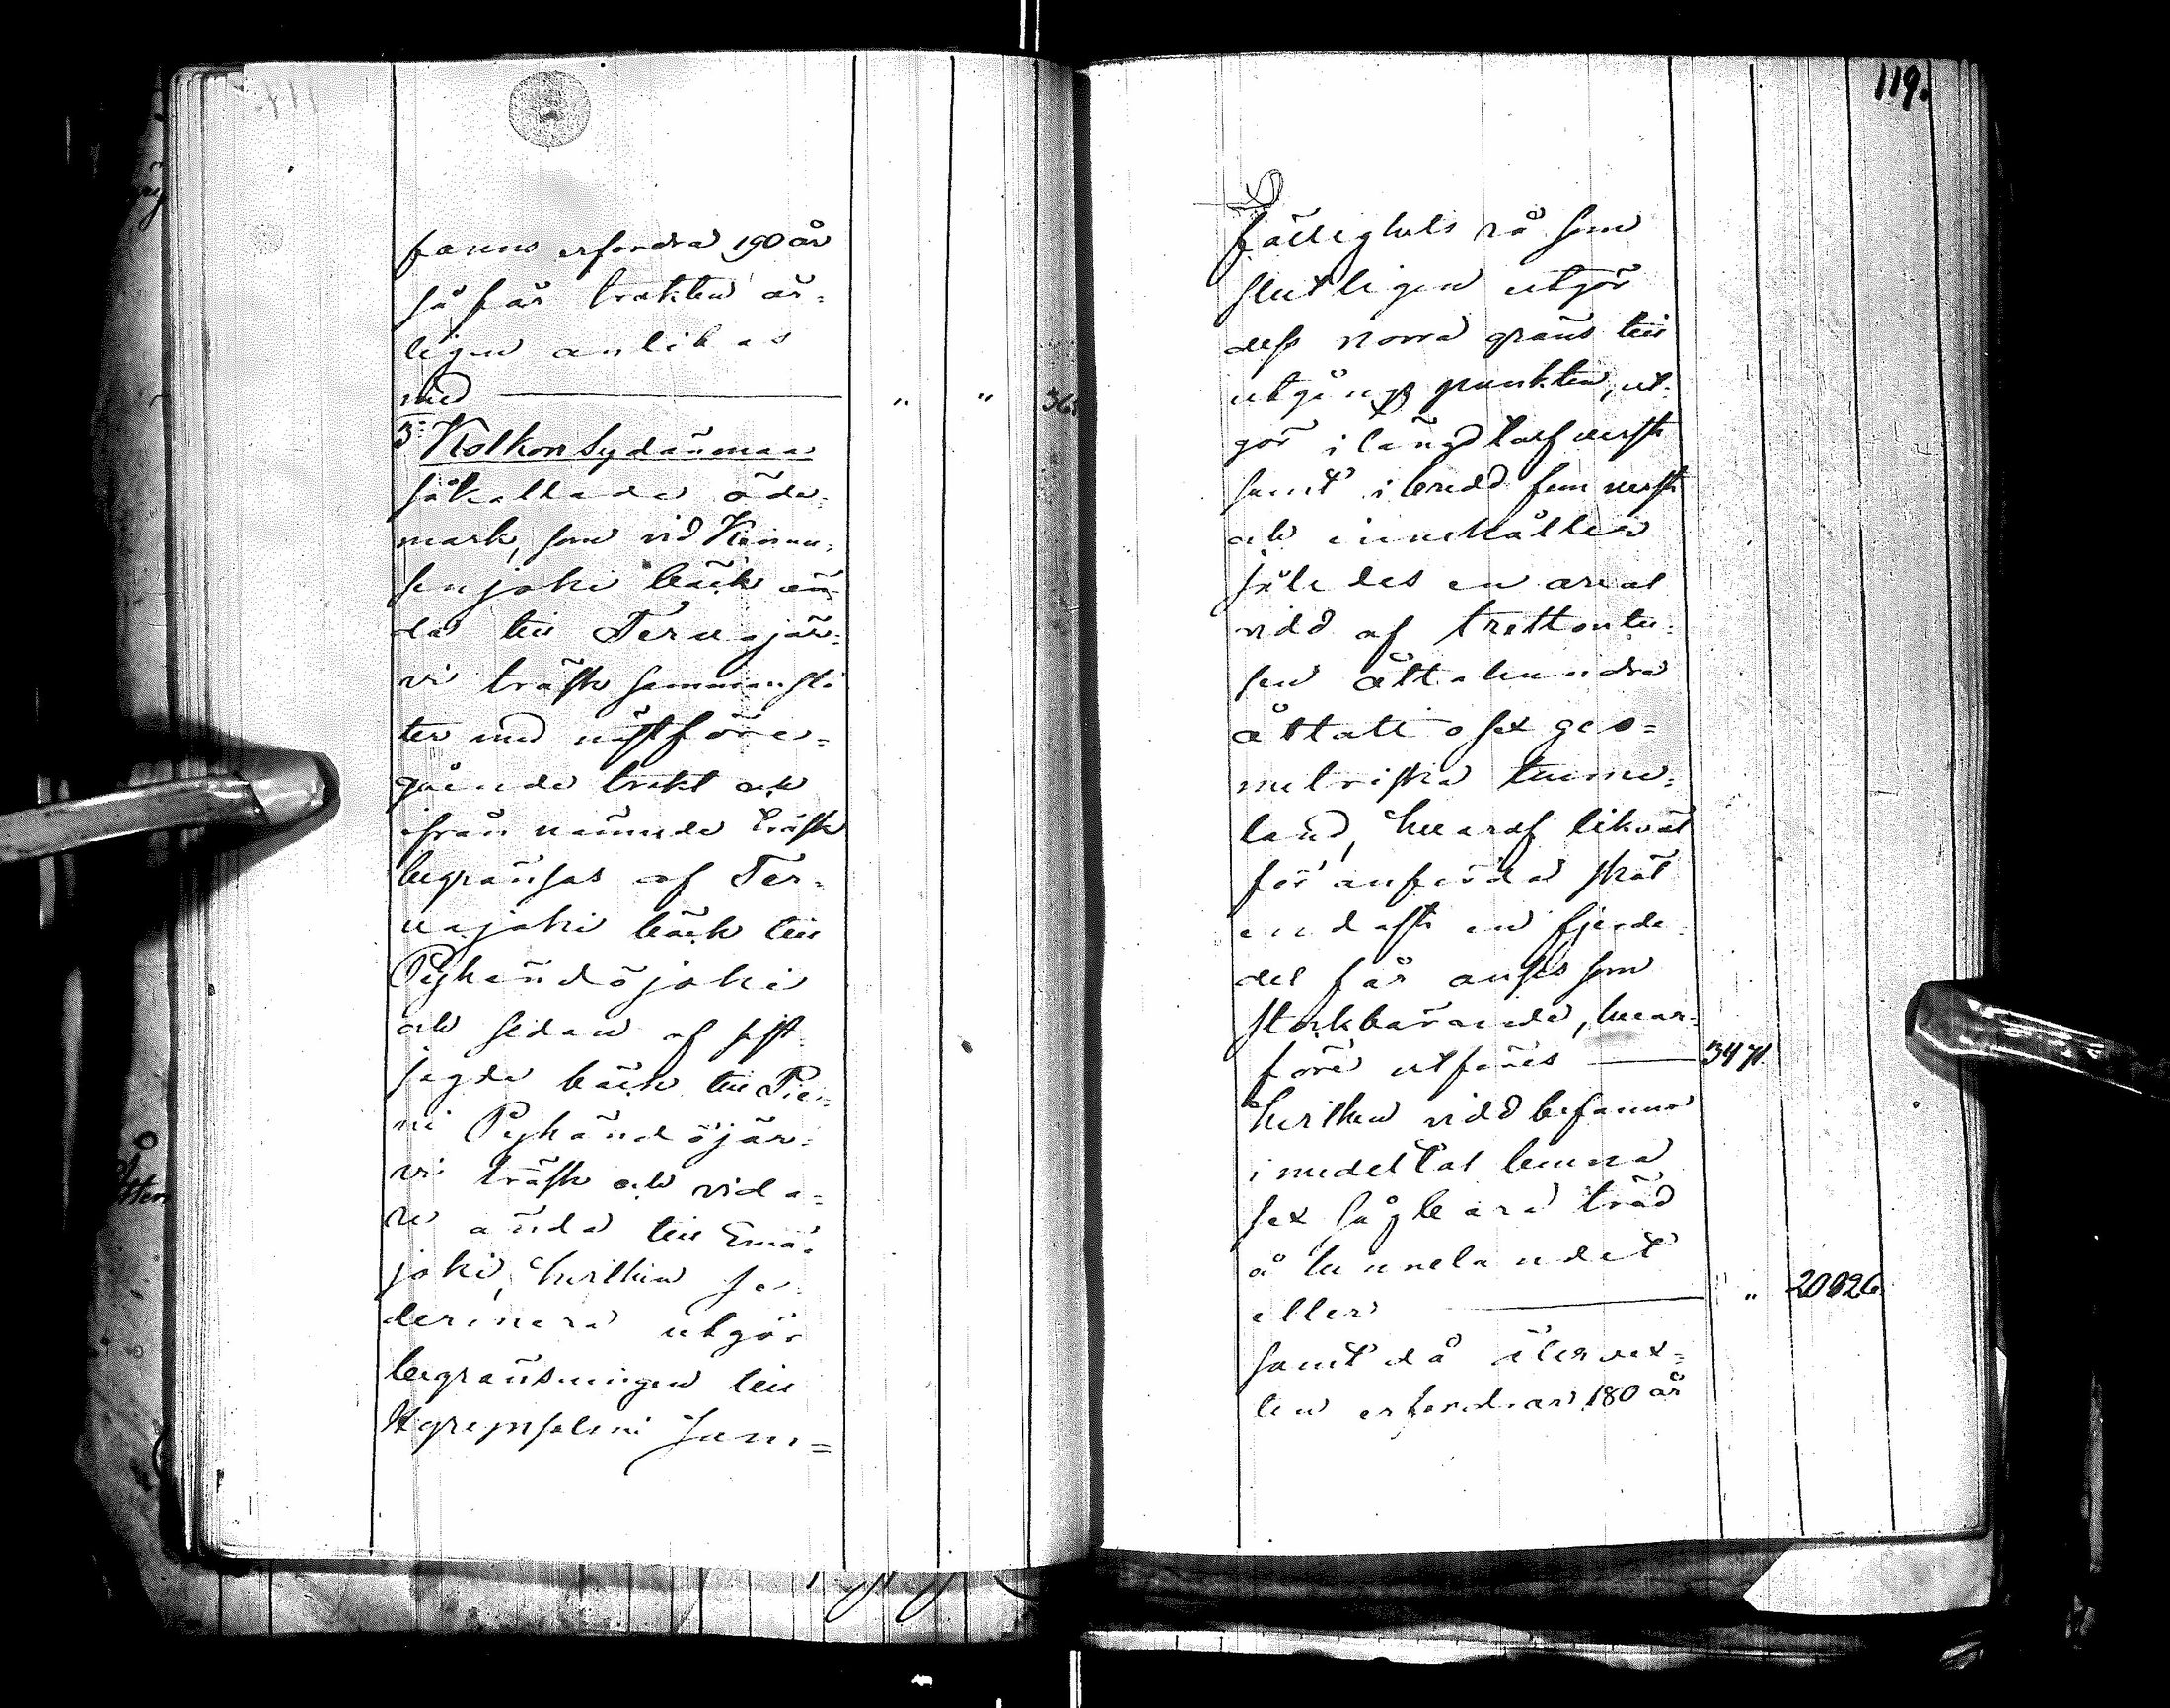 fanns erfordra 190 år
så får trakten år=
ligen anlitas
med ——— " " 36
5: Kolkonsydänmaa
såkallade öde=
mark, som vid Kiimu=
senjoki bäck än=
da till Teruajär=
vi träsk sammanstö
ter med nästföre=
gående trakt och
ifrån nämnde träsk
begränsas af Ter=
uajoki bäck till
Pyhändöjoki
och sedan af sist=
sagde bäck till Pie=
ni Pyhändöjär=
vi träsk och vida=
re ända till Emä=
joki, hvilken se=
dermera utgör
begränsningen till
Hyrynsalmi Sam=
119.
fällighets rå som
slutligen utgör
dess norra gräns till
utgångs punkten, ut=
gör i längd tolf werst
samt i bredd fem werst
och innehåller
således en areal
vidd af trettontu=
sen åttahundra
åttatiosex geo=
metriska tunne=
land, hvaraf likväl
för anförda skäl
endast en fjerde=
del får anses som
stockbärande, hvar=
före utföres ——— 3471.
hvilken vidd befanns
i medeltal lemna
sex sågbara träd
å tunnelandet
eller ——— " " 20826.
samt då återvex=
ten erfordrar 180 år